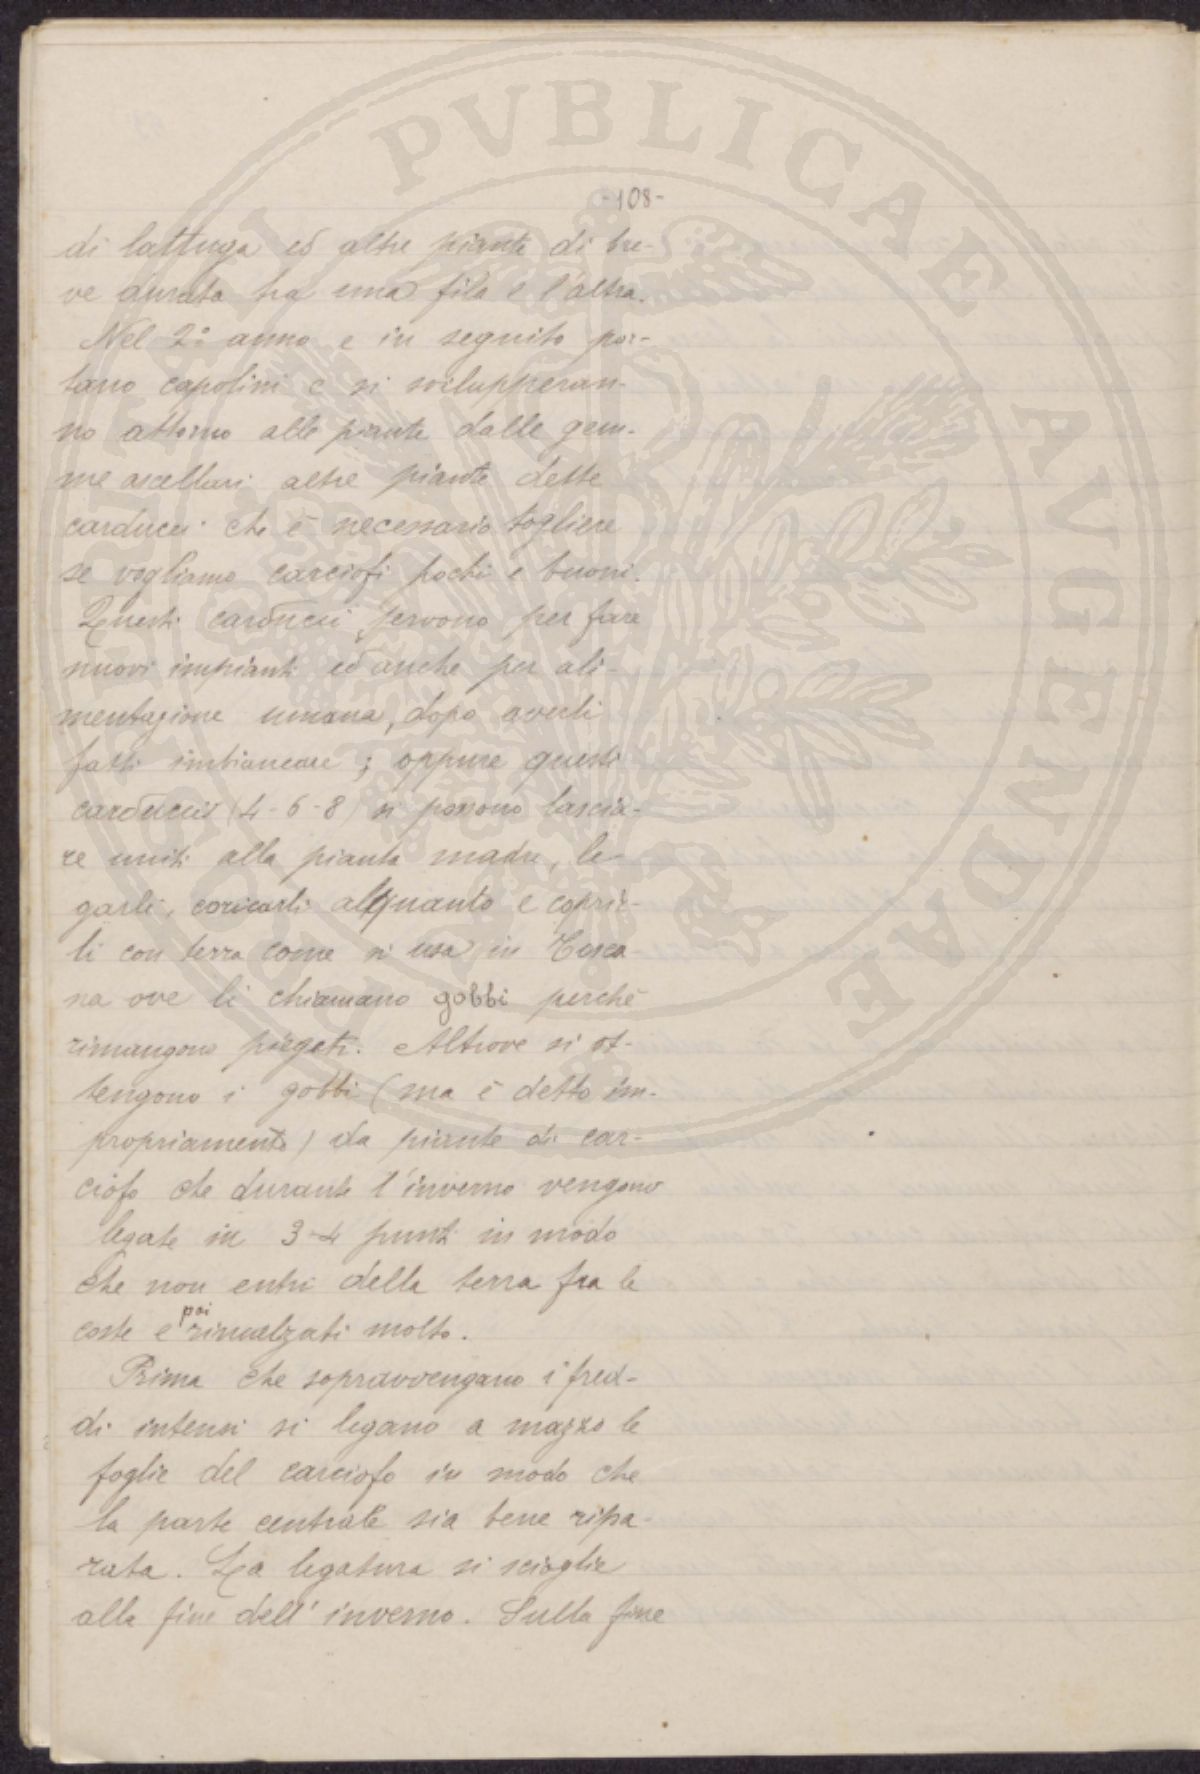 -108-
di lattuga ed altre piante di bre-
ve durata tra una fila e l'altra.
Nel 2° anno e in seguito por-
tano capolini e si svilupperan-
no attorno alle piante dalle gem-
me ascellari altre piante dette
carducci che è necessario togliere
se vogliamo carciofi pochi e buoni.
Questi carducci servono per fare
nuovi impianti ed anche per ali-
mentazione umana, dopo averli
fatti imbiancare; oppure questi
carducci (4-6-8) si possono lascia-
re uniti alla pianta madre, le-
garli, coricarli alquanto e coprir-
li con terra come si usa in Tosca-
na ove li chiamano gobbi perchè
rimangono piegati. Altrove si ot-
tengono i gobbi (ma è detto im-
propriamente) da piante di car-
ciofo che durante l'inverno vengono
legate in 3-4 punti in modo
che non entri della terra fra le
coste e poi rincalzati molto.
Prima che sopravvengano i fred-
di intensi si legano a mazzo le
foglie del carciofo in modo che
la parte centrale sia bene ripa-
rata. La legatura si scioglie
alla fine dell'inverno. Sulla fine
PVBLICAE AVGENDAE